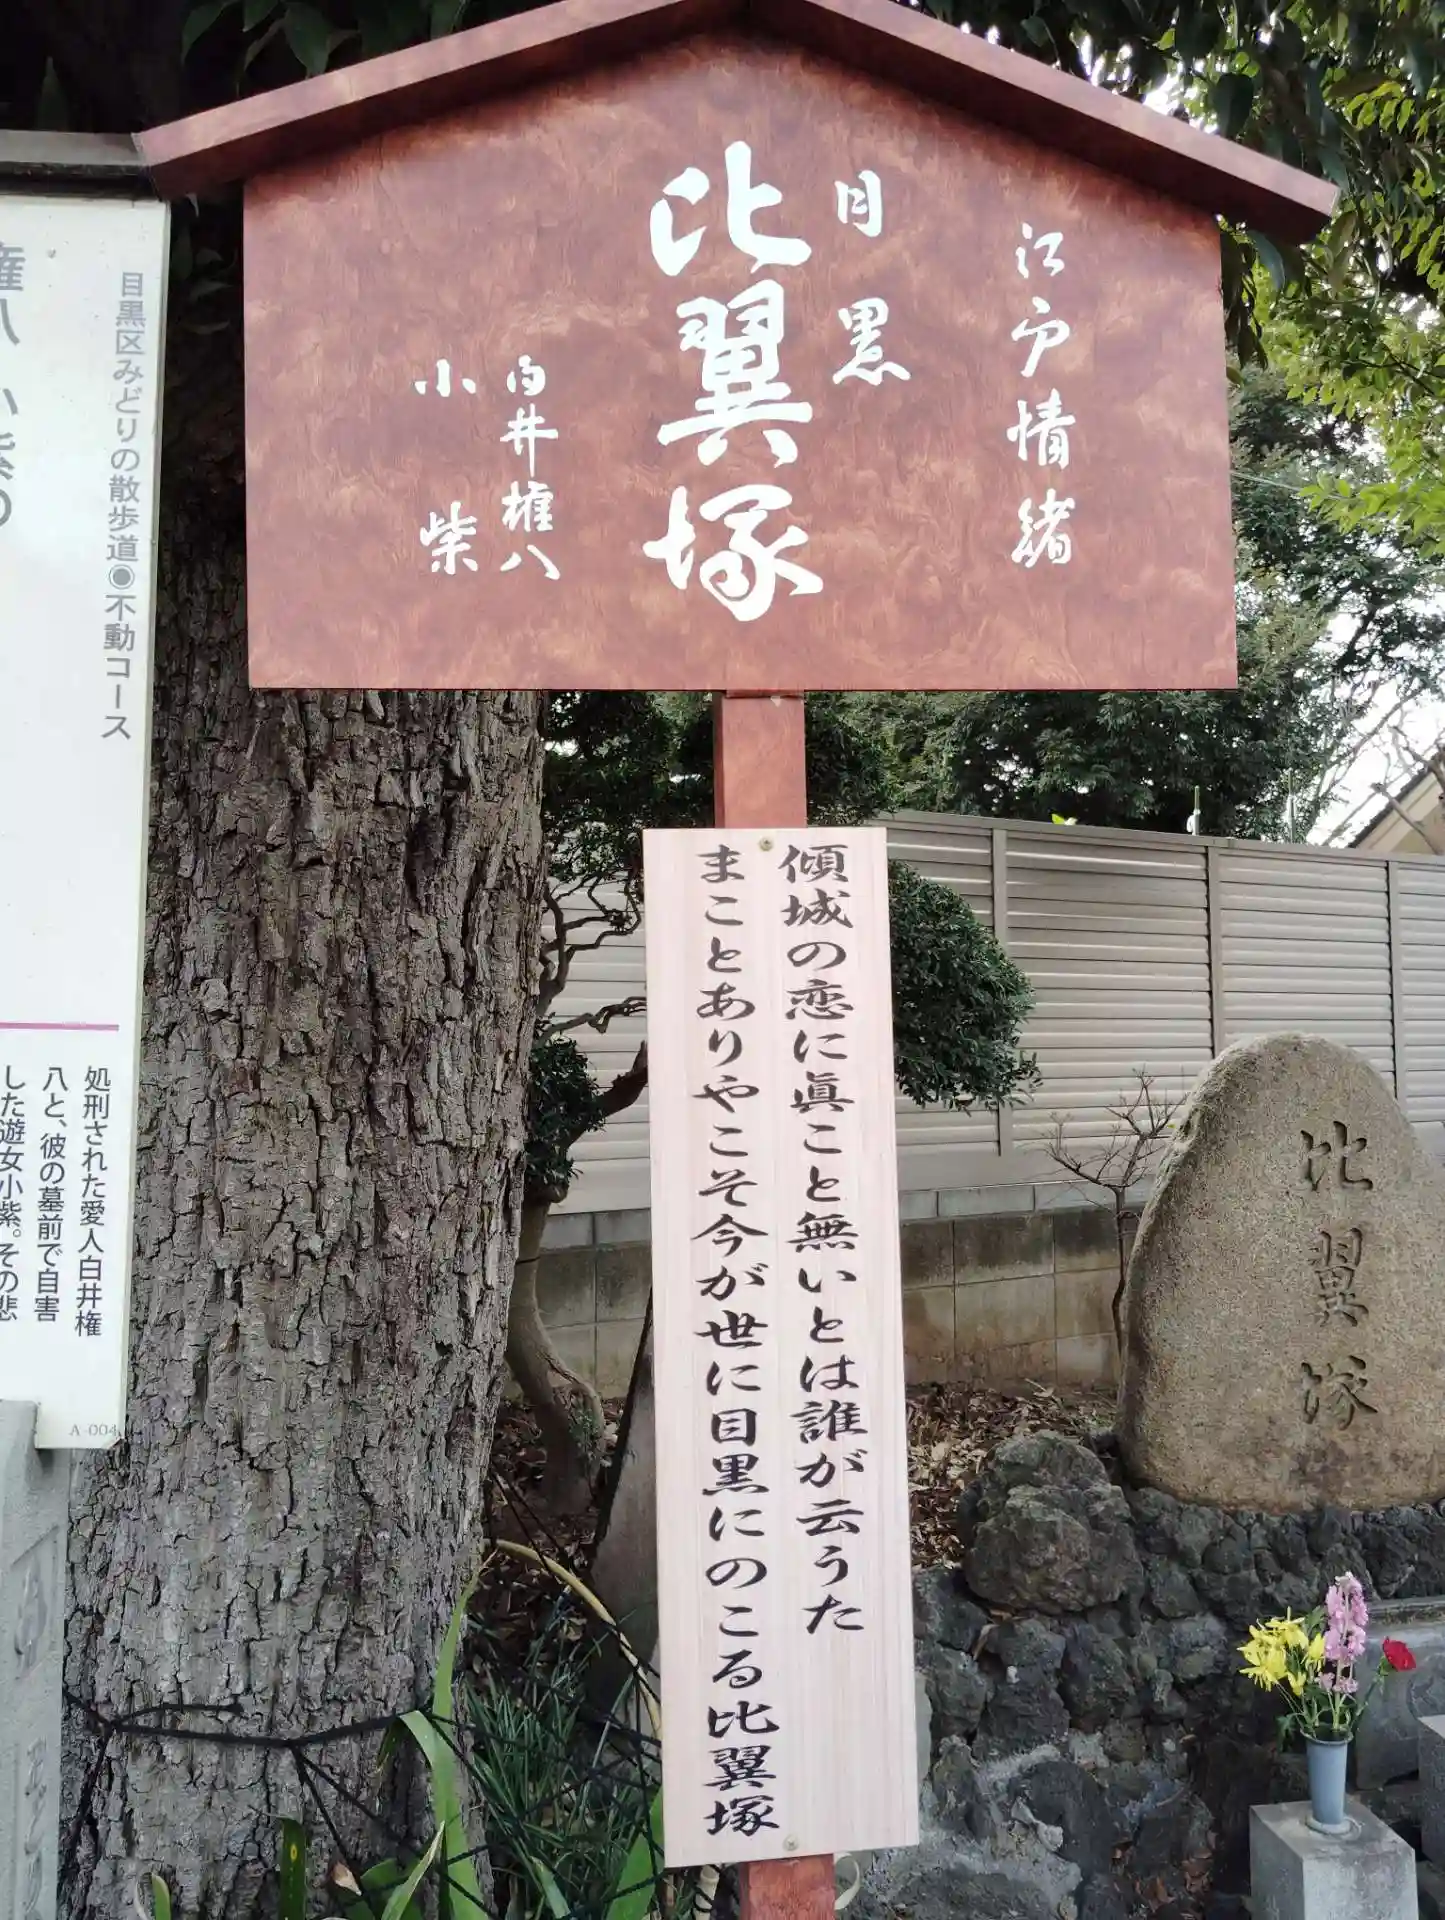 江戸情緒
目黒
比翼塚
白井権八
小柴
傾城の恋に眞こと無いとは誰が云うた
まことありやこそ今が世に目黒にのこる比翼塚
比翼塚
目黒区みどりの散歩道◉不動コース
権八 小紫の
処刑された愛人白井権
八と、彼の墓前で自害
した遊女小紫。その悲
A-004